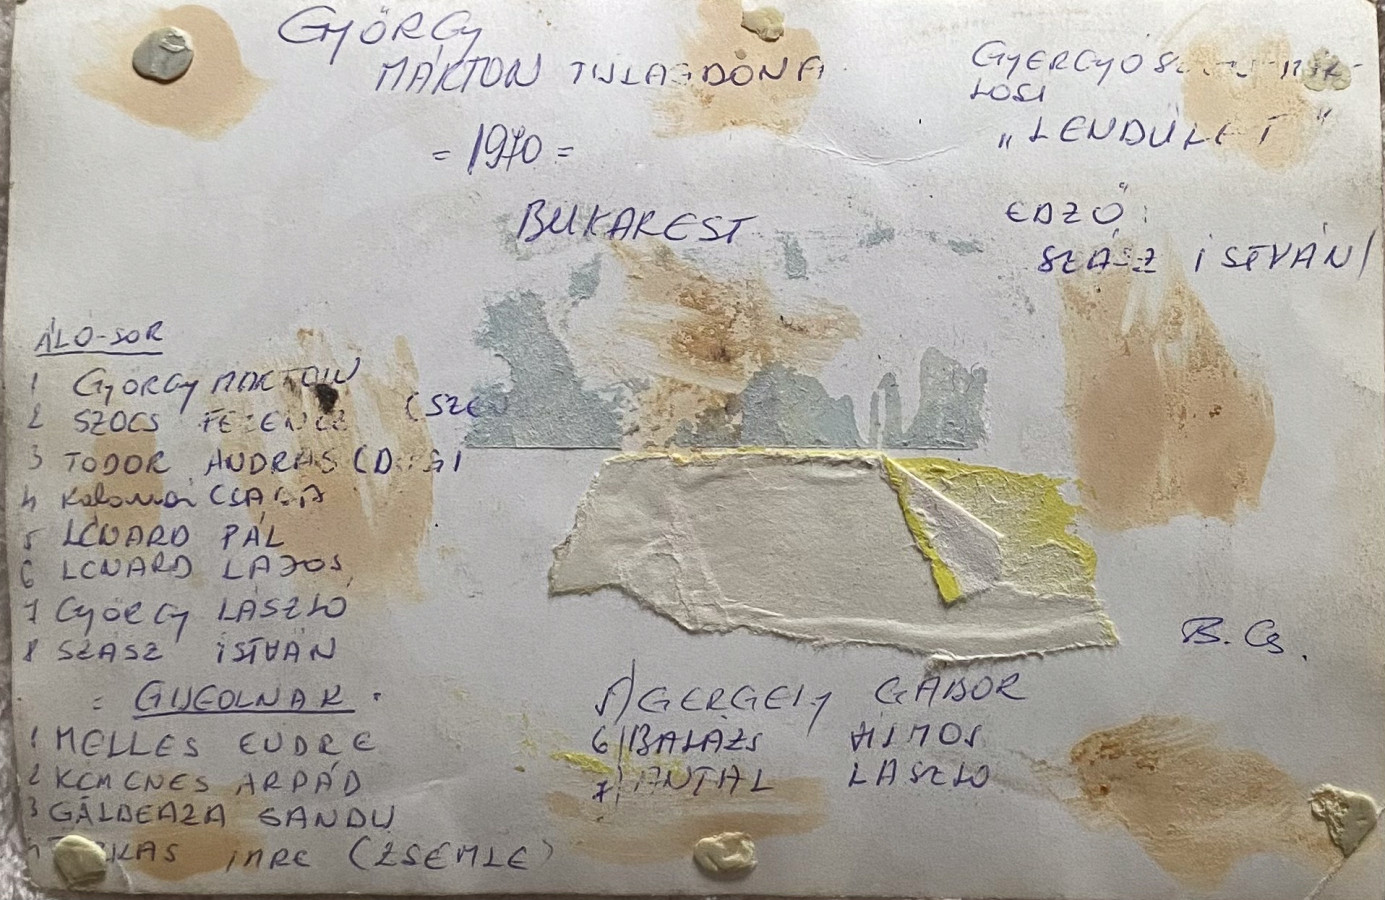 GYÖRGY
MÁRTON TULAJDONA
= 1970 =
BUKAREST
GYERGYÓSZ
LÓSI
„LENDÜLET"
EDZŐ:
SZÁSZ ISTVÁN/
ÁLO-SOR
1 GYÖRGY MÁRTON
2 SZŐCS FERENCZ (SZEN
3 TODOR ANDRÁS (D
4 Kolomai CSABA
5 LÉNÁRD PÁL
6 LÉNÁRD LAJOS
7 GYÖRGY LÁSZLÓ
8 SZÁSZ ISTVÁN
= GUGOLNAK =
1 MELLES ENDRE
2 KEMENES ÁRPÁD
3 GÂLBEAZA SANDU
4 IMRE (ZSEMLE)
5) GERGELY GÁBOR
6) BALÁZS ÁLMOS
7) ANTAL LÁSZLÓ
B. Cs.